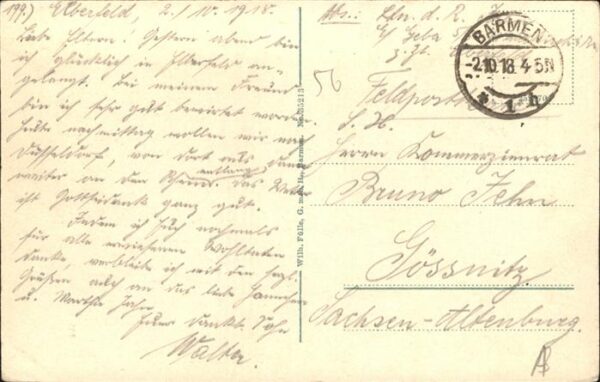 199.) Elberfeld, 2./10.1918.
Liebe Eltern! Gestern abend bin
ich glücklich in Elberfeld an-
gelangt. Bei meinem Freund
bin ich sehr gut bewirtet worden.
Heute nachmittag wollen wir nach
Düsseldorf von dort aus dann
weiter an den Rhein entlang. Das Wetter
ist Gottseidank ganz gut.
Indem ich Euch nochmals
für alle erwiesenen Wohltaten
danke verbleibe ich mit den herzl.
Grüßen auch an das liebe Hannchen
u. Martha
Euer dankb. Sohn
Walter.
Wilh. Fülle, G. m. b. H., Barmen. No. 35213
56
Abs.: Lttn. d. R.
BARMEN
-2.10.18. 4-5N
* 1 h
Feldpost
S. H.
Herrn Kommerzienrat
Bruno Jehn
Gössnitz
Sachsen-Altenburg.